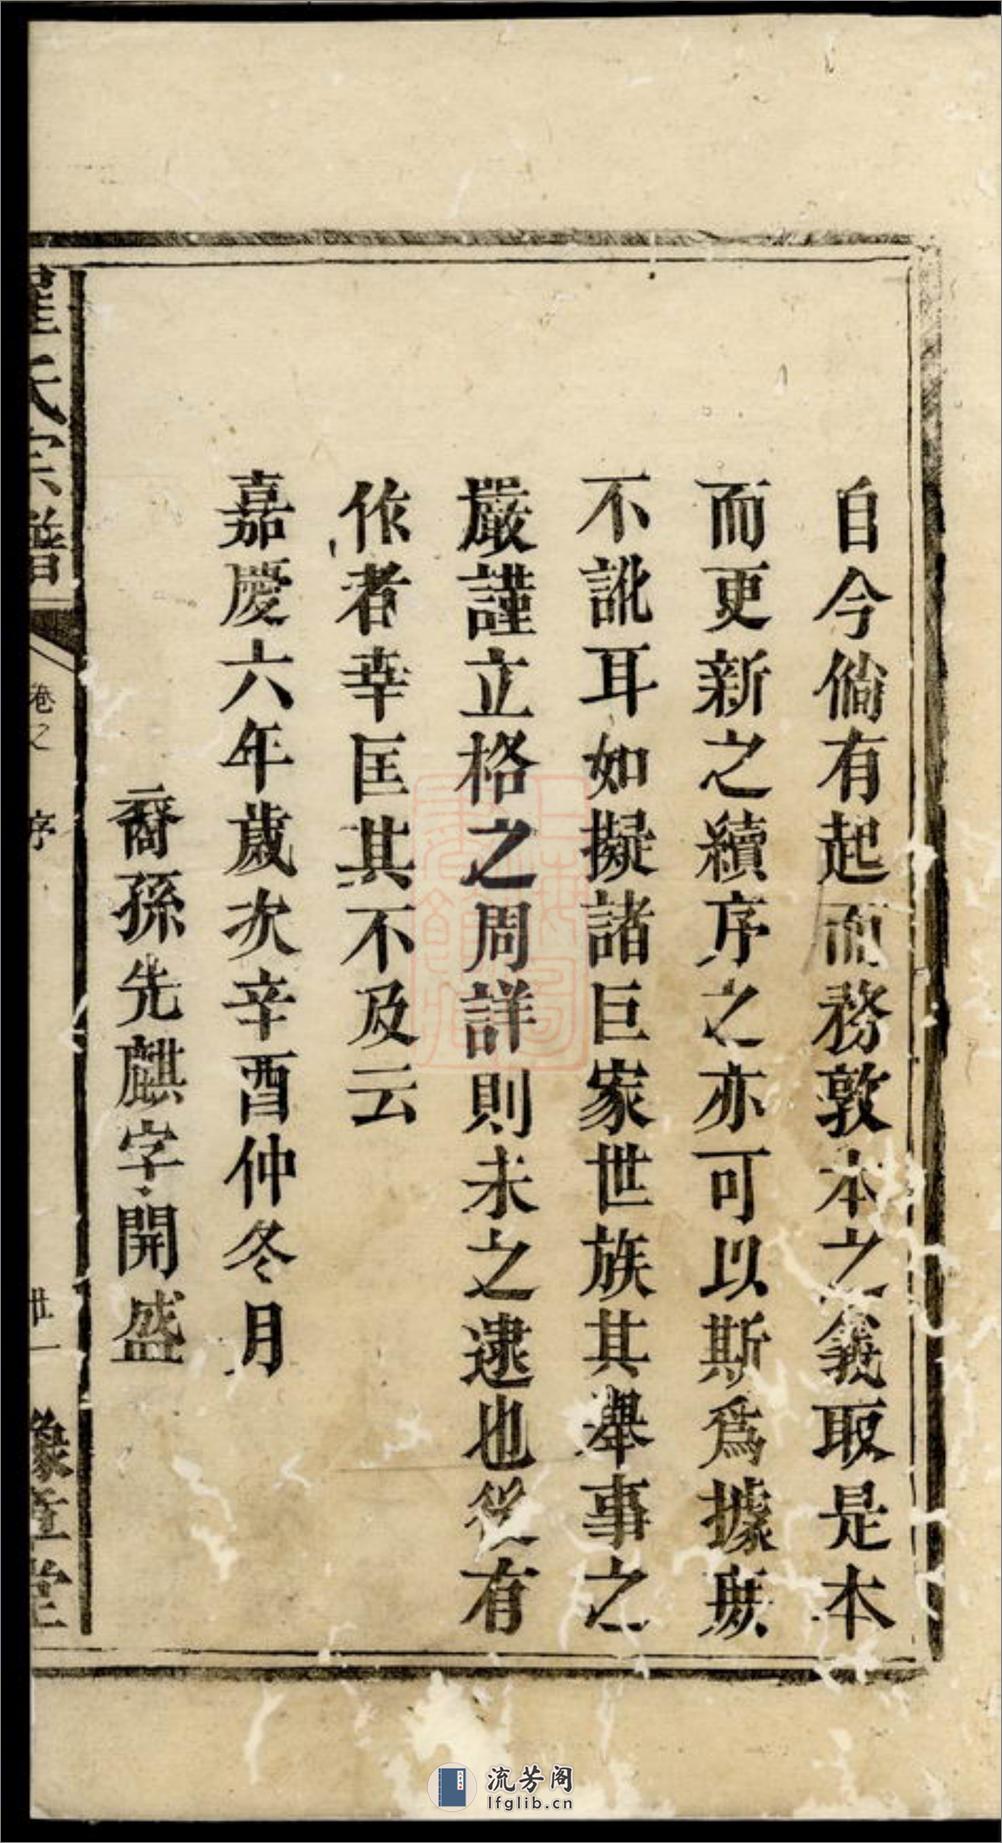 自今倘有起而務敦本之義取是本
而更新之續序之亦可以斯爲據庶
不訛耳如擬諸巨家世族其舉事之
嚴謹立格之周詳則未之逮也後有
作者幸匡其不及云
嘉慶六年歲次辛酉仲冬月
裔孫先麒字開盛
氏宗譜
卷之
序
世一
豫章堂
流芳阁
lfglib.cn